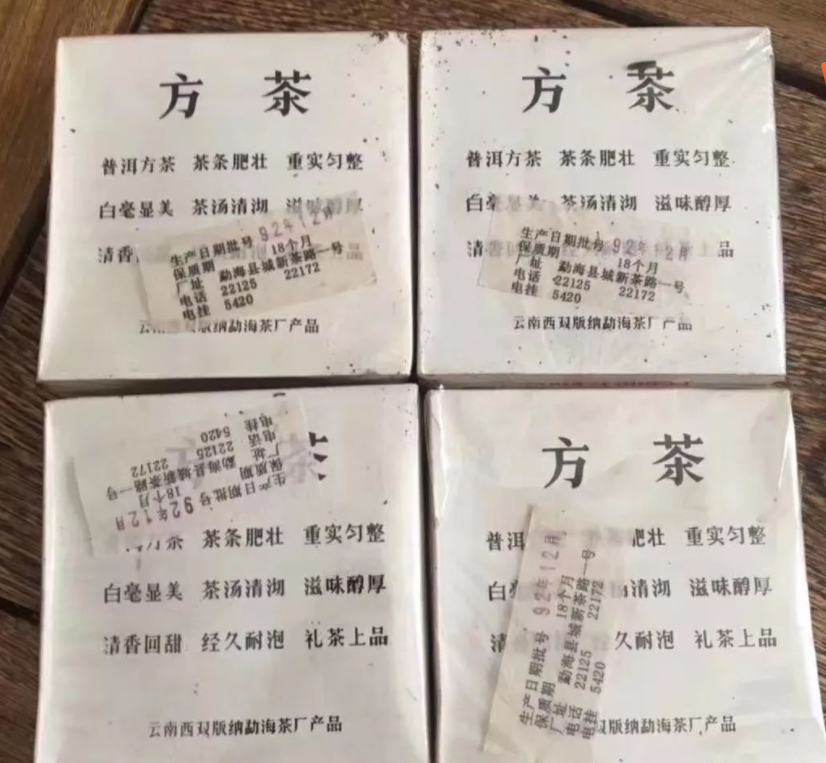 方 茶
普洱方茶 茶条肥壮 重实匀整
白毫显美 茶汤清湖 滋味醇厚
清香
生产日期批号 92年12月
保质期 18个月
厂址 勐海县城新茶路一号
电话 22125 22172
电挂 5420
云南西双版纳勐海茶厂产品
方 茶
普洱方茶 茶条肥壮 重实匀整
白毫显美 茶汤清湖 滋味醇厚
清香回 上品
生产日期批号 92年12月
保质期 18个月
厂址 勐海县城新茶路一号
电话 22125 22172
电挂 5420
云南西双版纳勐海茶厂产品
方 茶
生产日期批号 92年12月
保质期 18个月
厂址 勐海县城新茶路一号
电话 22125 22172
电挂 5420
方茶 茶条肥壮 重实匀整
白毫显美 茶汤清湖 滋味醇厚
清香回甜 经久耐泡 礼茶上品
云南西双版纳勐海茶厂产品
方 茶
普洱 肥壮 重实匀整
白毫 清湖 滋味醇厚
清 久耐泡 礼茶上品
生产日期批号 92年12月
保质期 18个月
厂址 勐海县城新茶路一号
电话 22125 22172
电挂 5420
双版纳勐海茶厂产品